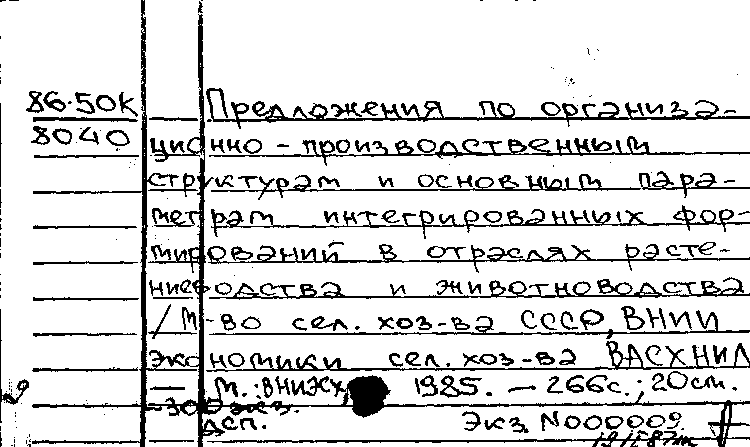 86-50к Предложения по организа-
8040 ционно-производственным
структурам и основным пара-
метрам интегрированных фор-
мирований в отраслях расте-
ниеводства и животноводства
/ М-во сел. хоз-ва СССР, ВНИИ
экономики сел. хоз-ва ВАСХНИЛ
— М.: 1985. — 266с.; 20см.
— 300 экз.
ДСП. Экз. N000009